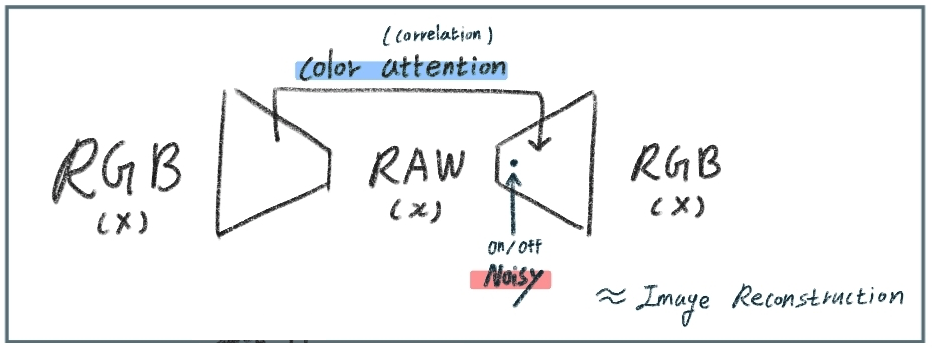 (correlation)
color attention
RGB
(X)
RAW
(x)
RGB
(X)
on/off
Noisy
≈ Image Reconstruction